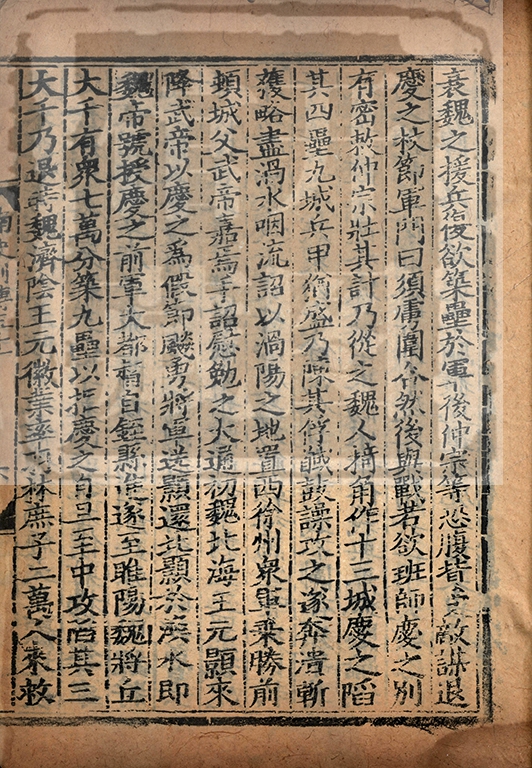 衰魏之援兵復欲築壘於軍後仲宗等恐腹背受敵謀退
慶之杖節軍門曰須虜圍合然後與戰若欲班師慶之別
有密敕仲宗壯其計乃從之魏人掎角作十三城慶之陷
其四壘九城兵甲猶盛乃陳其俘馘鼓譟攻之遂奔潰斬
獲略盡渦水咽流詔以渦陽之地置西徐州衆軍乘勝前
頓城父武帝嘉焉手詔慰勉之大通初魏北海王元顥來
降武帝以慶之為假節飈勇將軍送顥還北顥於渙水即
魏帝號授慶之前軍大都督自銍縣進遂至睢陽魏將丘
大千有衆七萬分築九壘以拒慶之自旦至中攻陷其三
大千乃退時魏濟陰王元徽業率羽林庶子二萬人來救